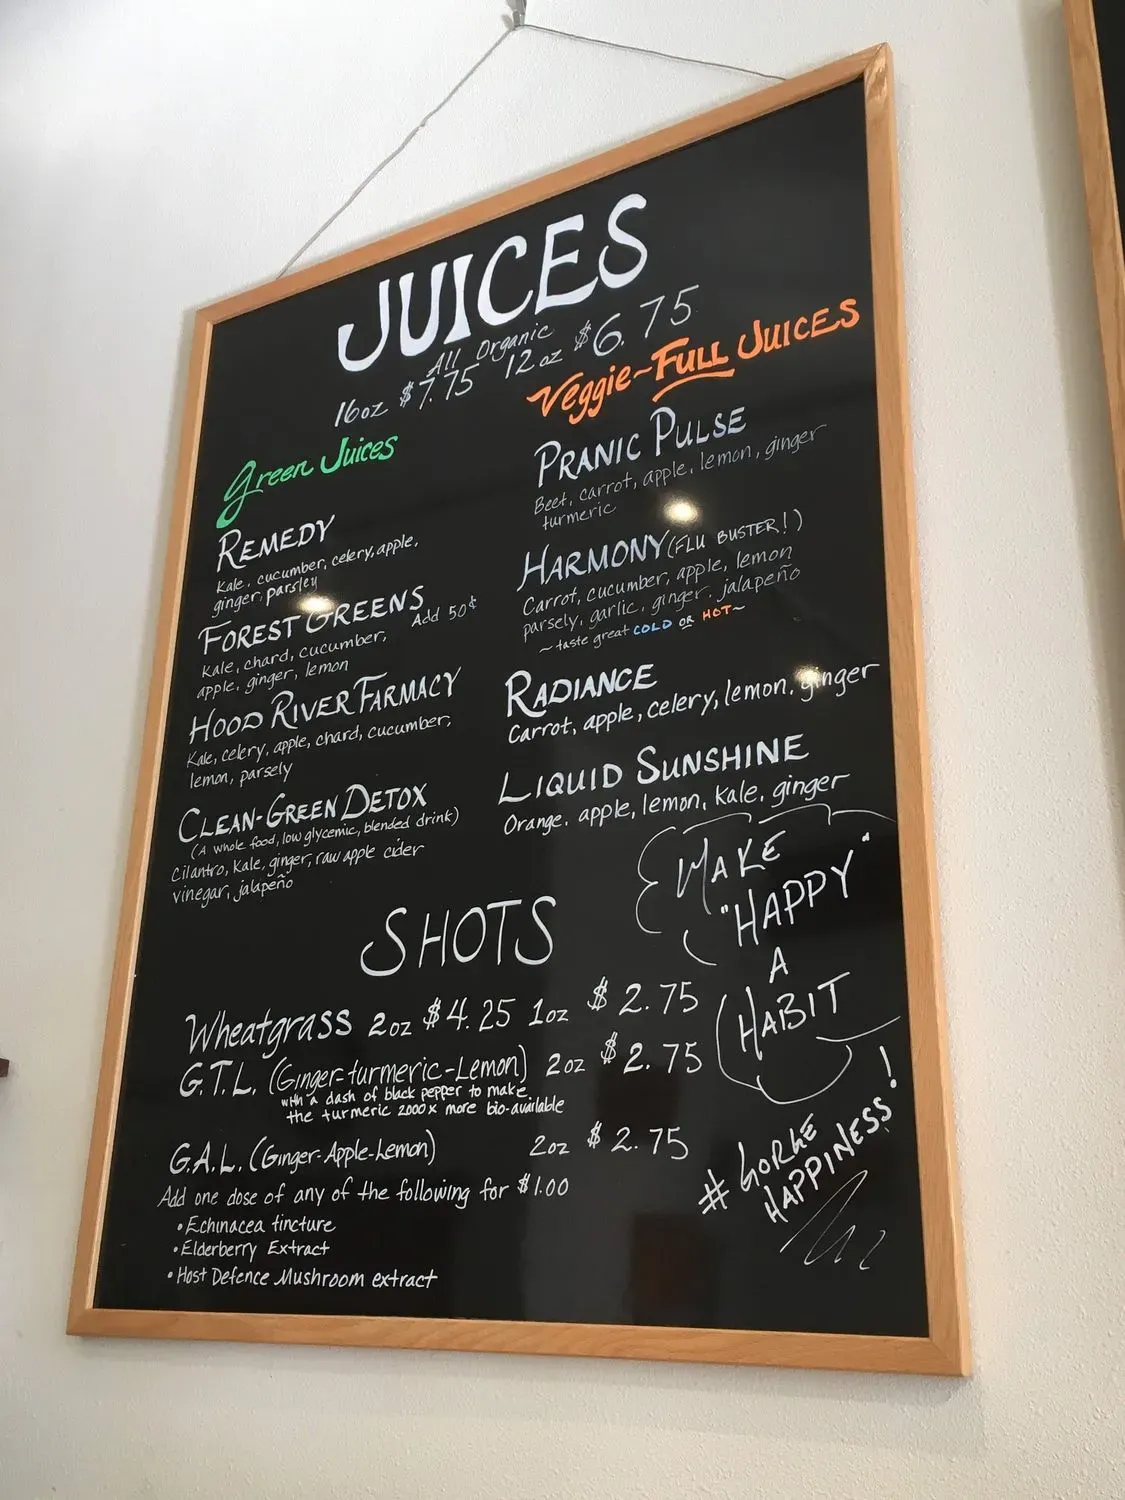 JUICES
All Organic
16oz $7.75 12oz $6.75
Green Juices
REMEDY
Kale, cucumber, celery, apple,
ginger, parsley
FOREST GREENS Add 50¢
Kale, chard, cucumber,
apple, ginger, lemon
HOOD RIVER FARMACY
Kale, celery, apple, chard, cucumber,
lemon, parsely
CLEAN-GREEN DETOX
(A whole food, low glycemic, blended drink)
Cilantro, Kale, ginger, raw apple cider
vinegar, jalapeño
Veggie~FULL JUICES
PRANIC PULSE
Beet, carrot, apple, lemon, ginger
turmeric
HARMONY (FLU BUSTER!)
Carrot, cucumber, apple, lemon
parsely, garlic, ginger, jalapeño
~taste great COLD OR HOT~
RADIANCE
Carrot, apple, celery, lemon, ginger
LIQUID SUNSHINE
Orange, apple, lemon, Kale, ginger
SHOTS
Wheatgrass 2oz $4.25 1oz $2.75
G.T.L. (Ginger-turmeric-Lemon) 2oz $2.75
with a dash of black pepper to make
the turmeric 2000x more bio-available
G.A.L. (Ginger-Apple-Lemon) 2oz $2.75
Add one dose of any of the following for $1.00
• Echinacea tincture
• Elderberry Extract
• Host Defence Mushroom extract
MAKE
"HAPPY"
A
HABIT
# GORGE
HAPPINESS!